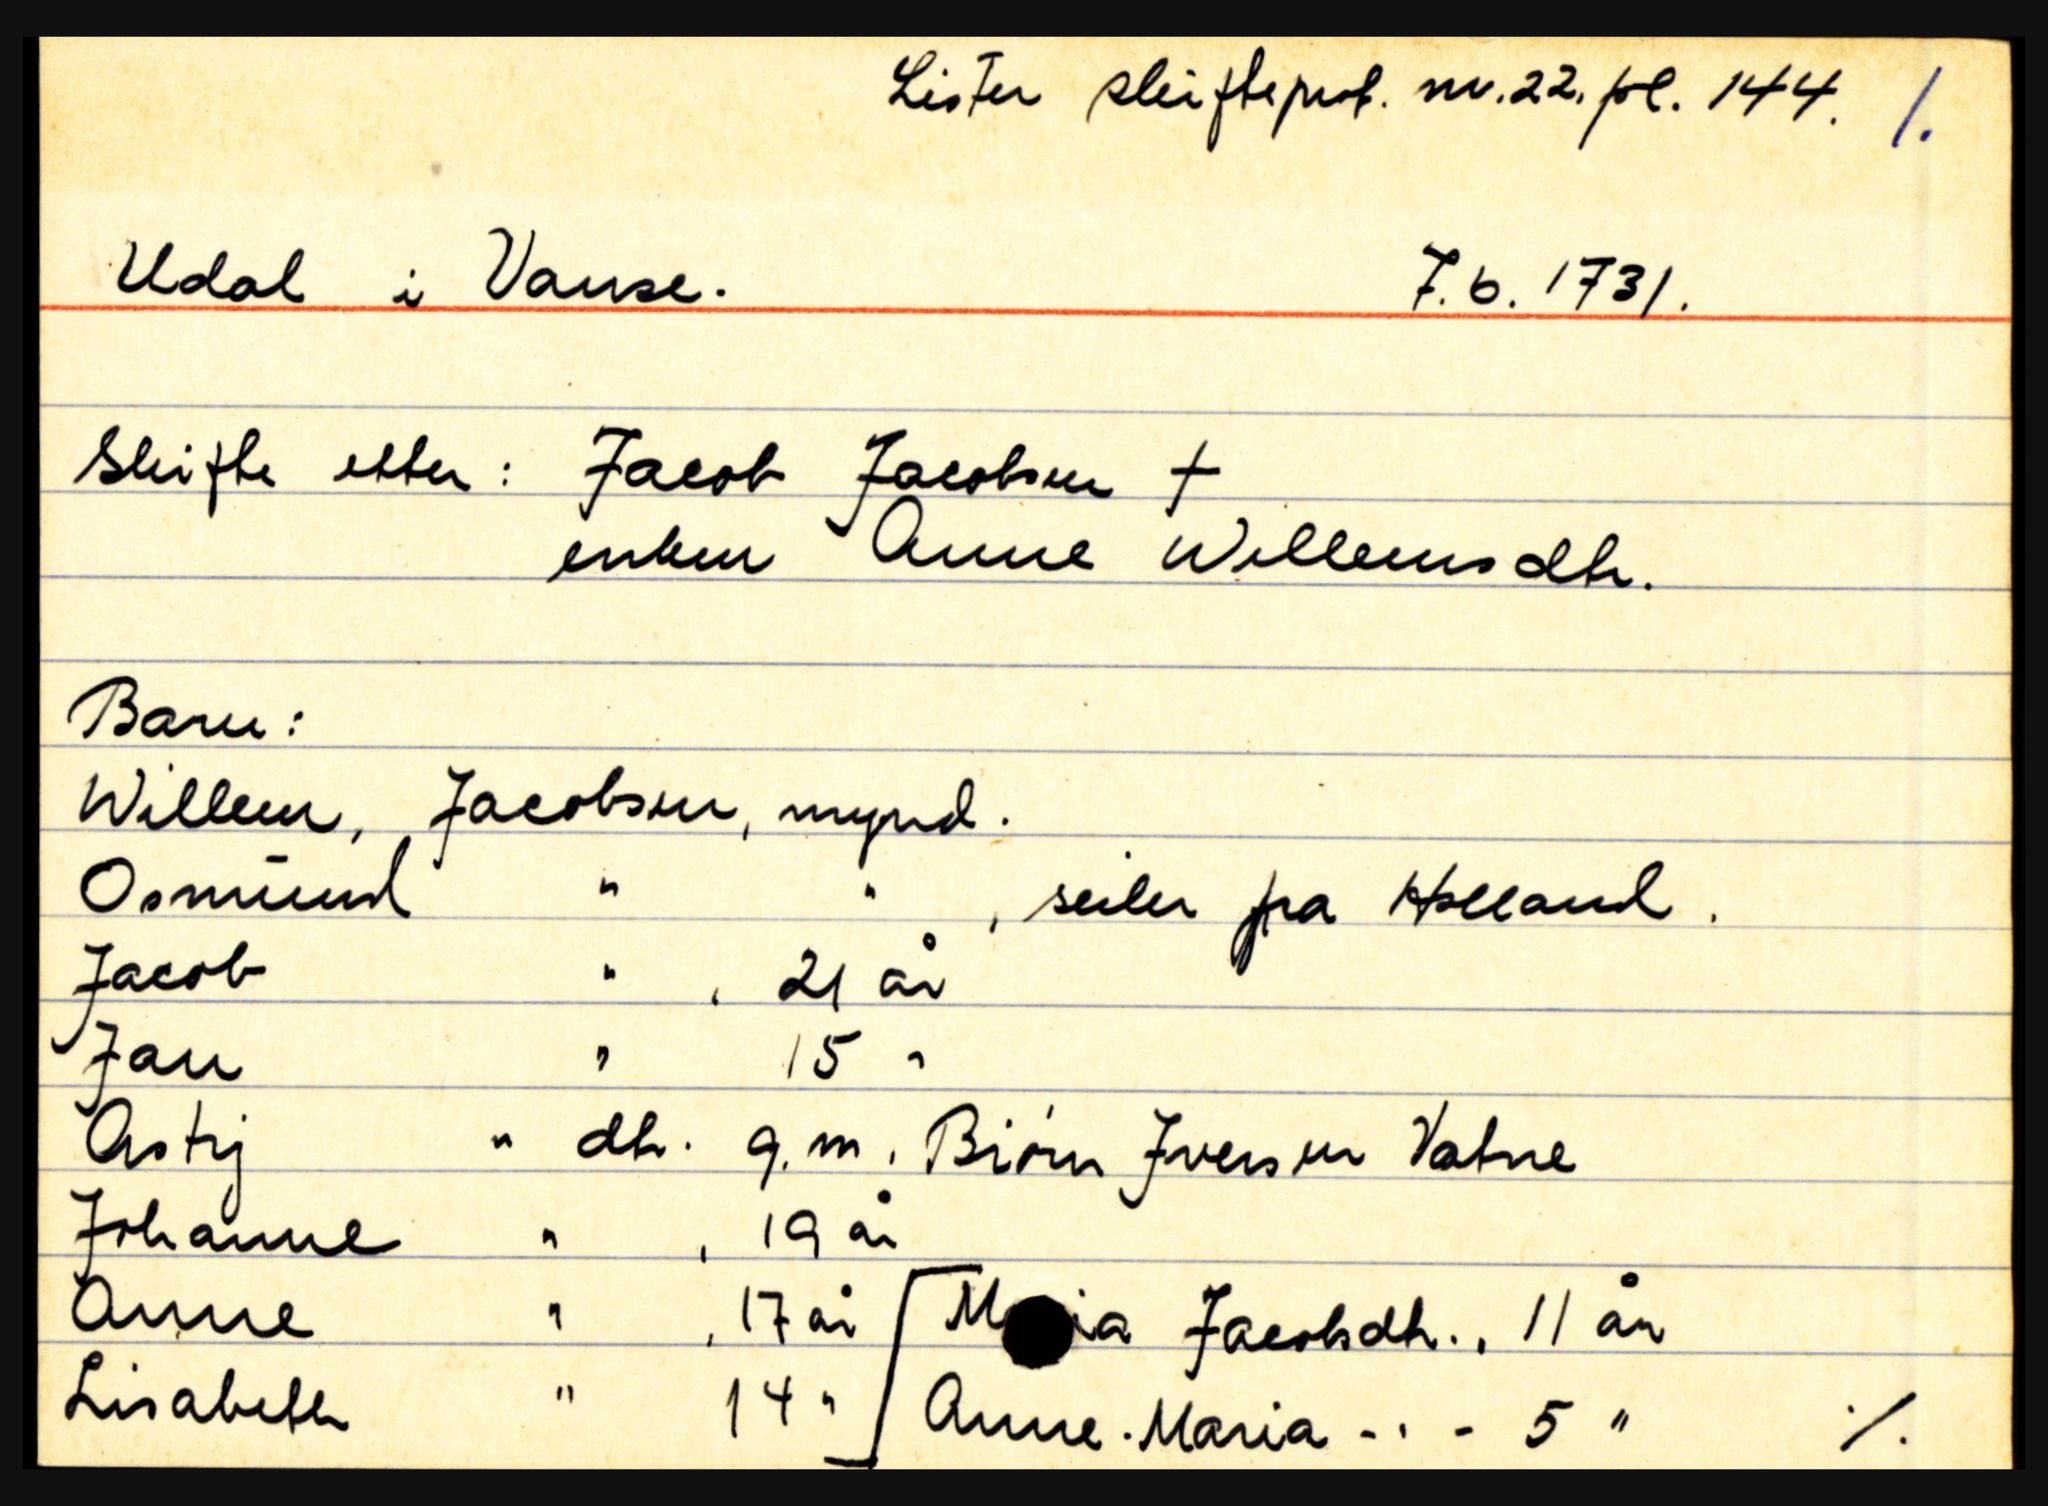 Lister skifteprot. nr. 22. fol. 144. /.
Udal i Vanse. 7.6.1731.
Skifte etter: Jacob Jacobsen †
enken Anne Willemsdtr.
Barn:
Willem, Jacobsen, mynd.
Osmund " " , seiler fra Holland.
Jacob " , 21 år
Jan " 15 "
Astrj " dtr. g.m. Biørn Iversen Vatne
Johanne " , 19 år
Anne " , 17 år [ Maria Jacobsdtr., 11 år
Lisabeth " 14 " Anne Maria - " - 5 " ./.